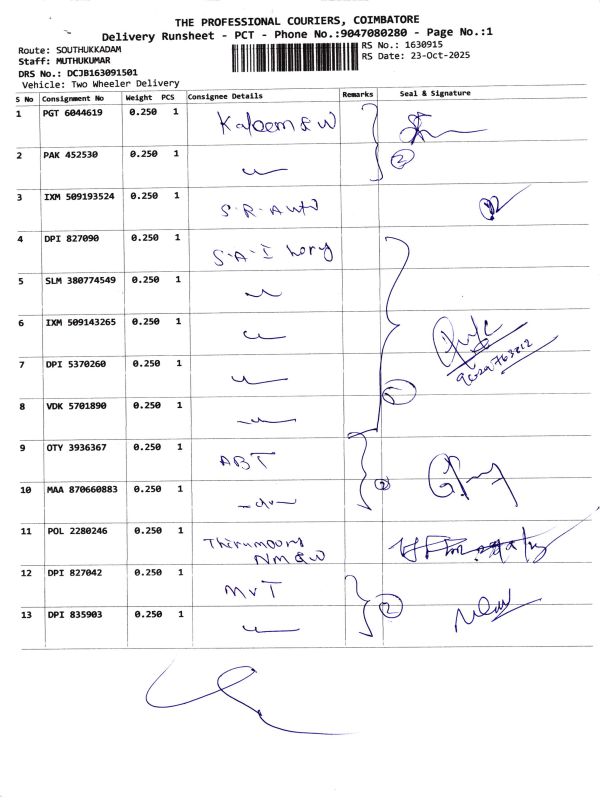 THE PROFESSIONAL COURIERS, COIMBATORE
Delivery Runsheet - PCT - Phone No.:9047080280 - Page No.:1
Route: SOUTHUKKADAM RS No.: 1630915
Staff: MUTHUKUMAR RS Date: 23-Oct-2025
DRS No.: DCJB163091501
Vehicle: Two Wheeler Delivery
S No Consignment No Weight PCS Consignee Details Remarks Seal & Signature
1 PGT 6044619 0.250 1 Kaleem & W
2 PAK 452530 0.250 1 2
3 IXM 509193524 0.250 1 S.R. Auto
4 DPI 827090 0.250 1 S.A.I Lorry
5 SLM 380774549 0.250 1
6 IXM 509143265 0.250 1
7 DPI 5370260 0.250 1
8 VDK 5701890 0.250 1
9 OTY 3936367 0.250 1 ABT
10 MAA 870660883 0.250 1 -do- 2
11 POL 2280246 0.250 1 Thirumoorthy
NM & W
12 DPI 827042 0.250 1 MVT
13 DPI 835903 0.250 1 2